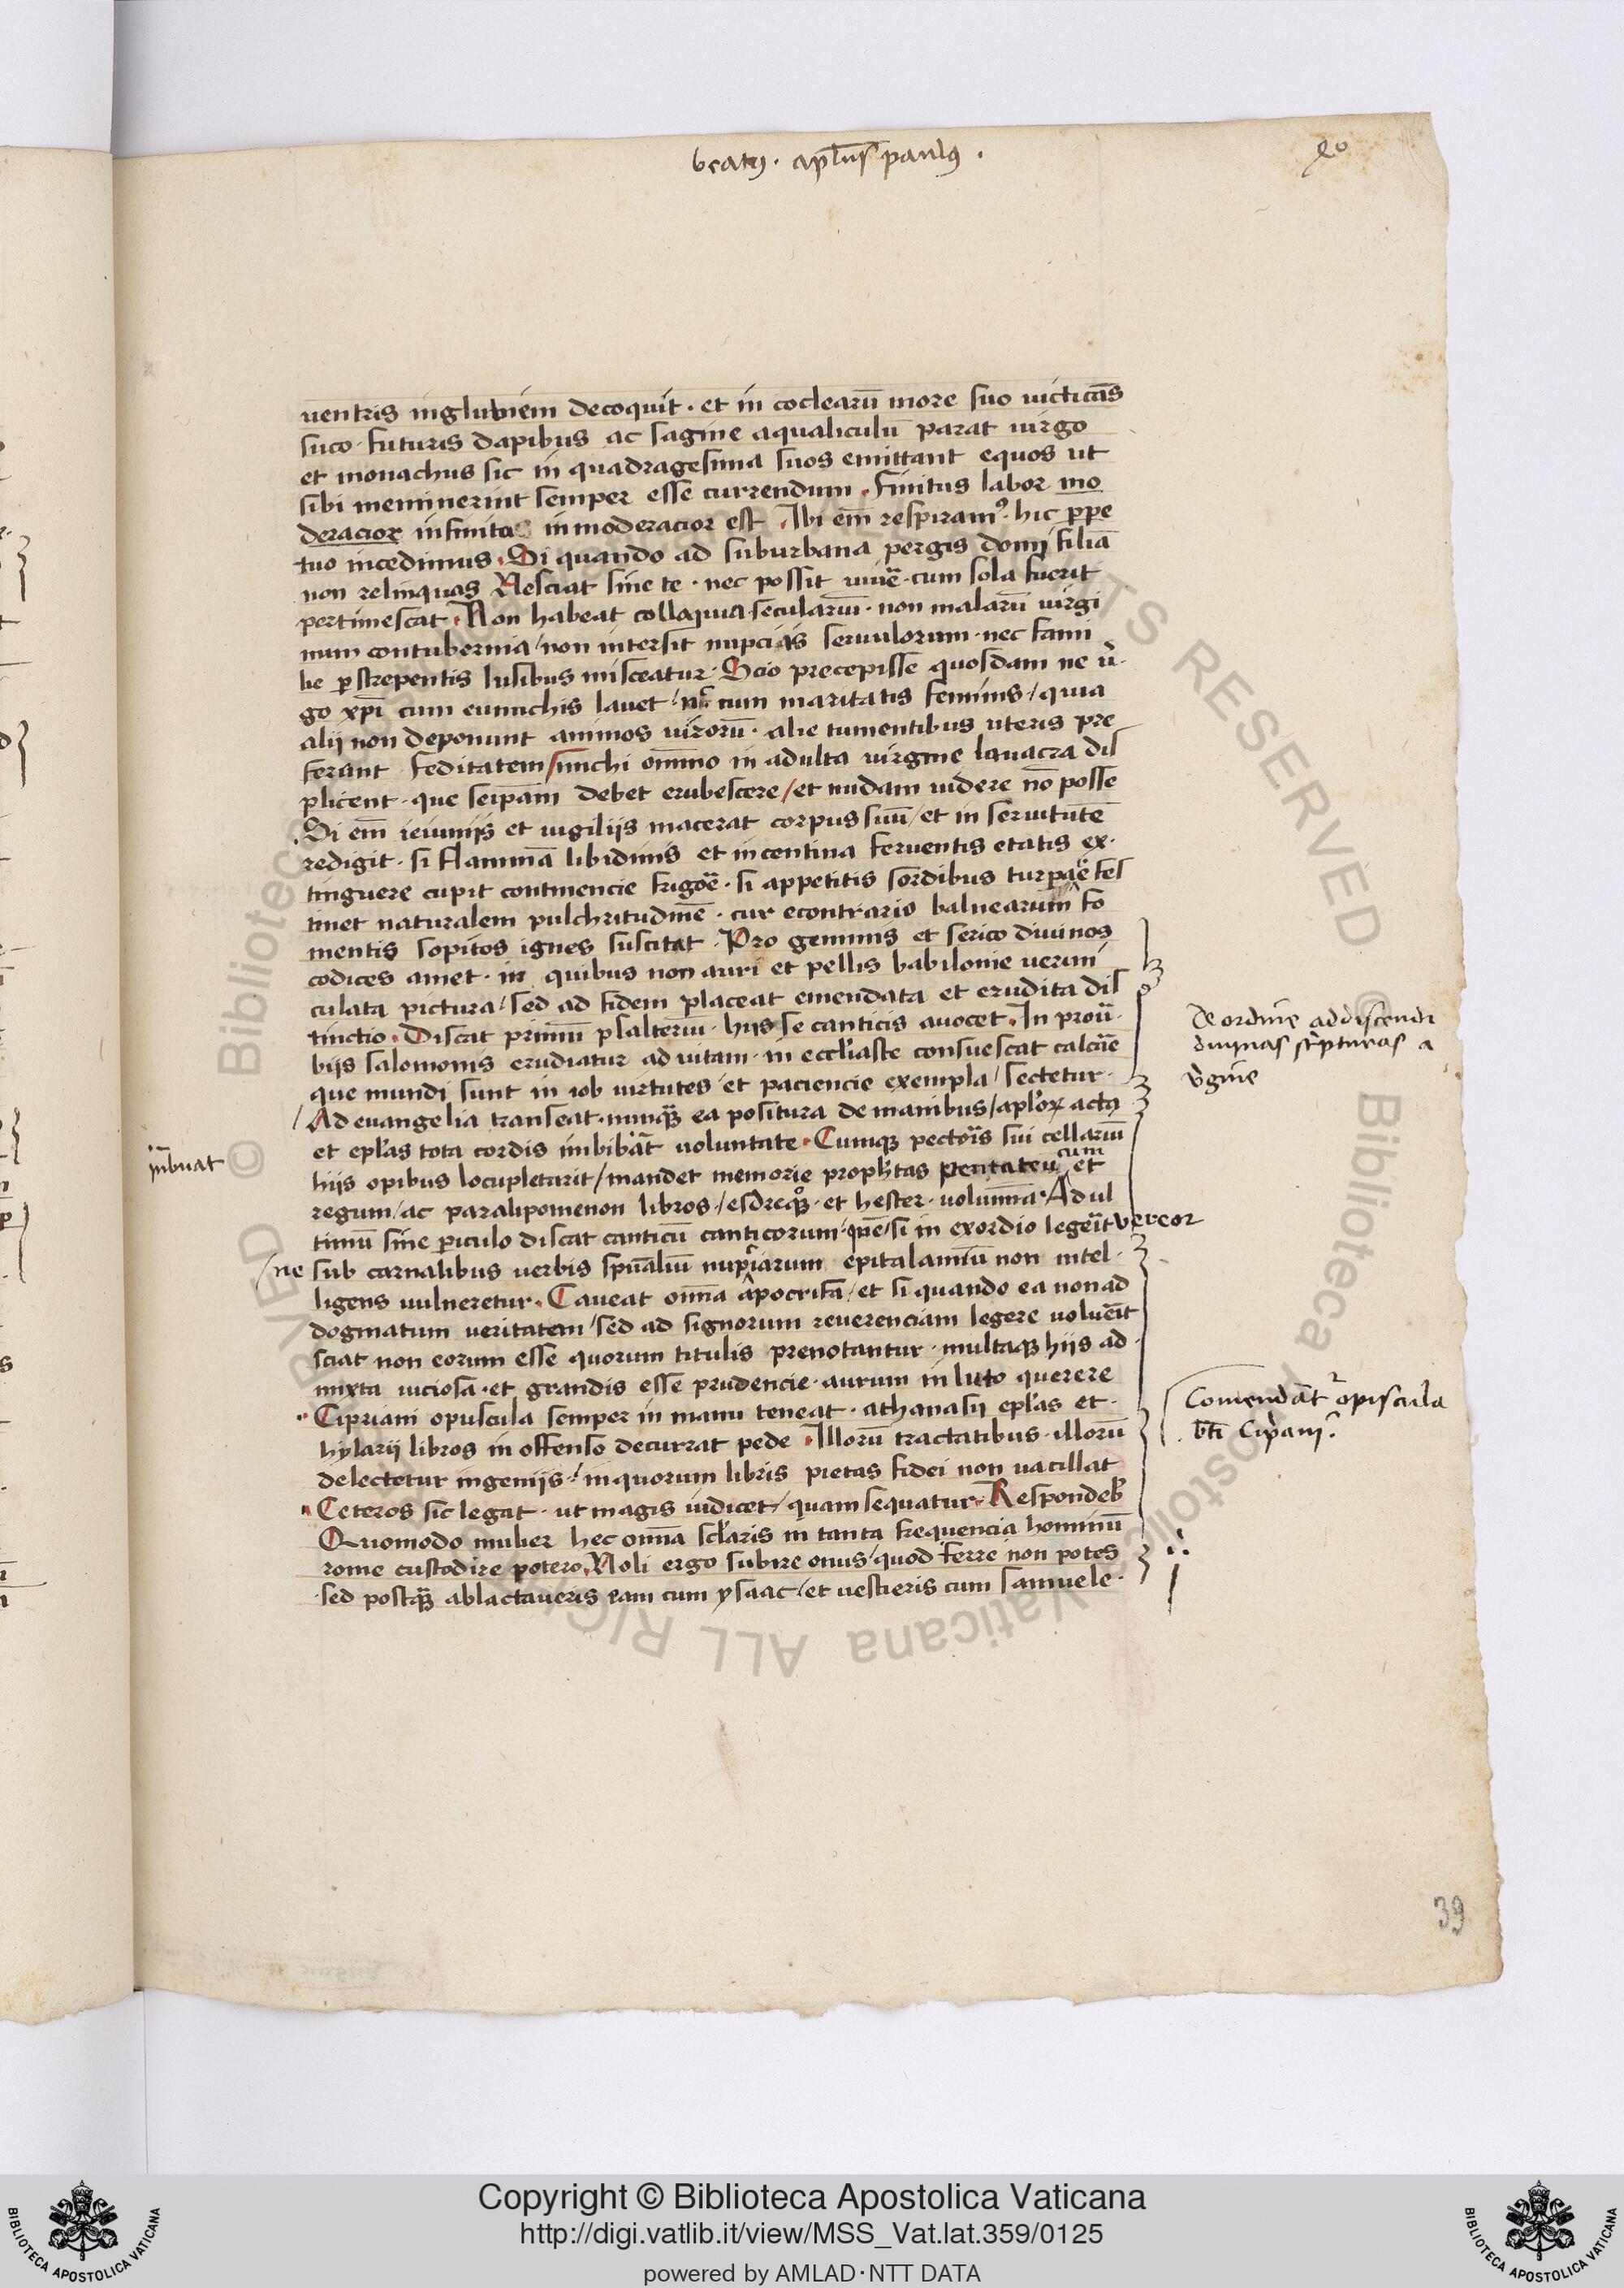 beatꝰ. apl̄us paulꝰ.
40
uentris ingluuiem decoquit · et in coclearū more suo uictitās
suco · futuris dapibus ac sagine aqualiculū parat uirgo
et monachus sic in quadragesima suos emittant equos ut
sibi meminerint semper esse currendum . Finitus labor mo
deracior infinito inmoderacior est . Ibi em̄ respiramꝰ · hic ꝑpe
tuo incedimus . Si quando ad suburbana pergis domi filiā
non relinquas Nesciat sine te · nec possit uiuē̄ · cum sola fuerit
pertimescat . Non habeat colloquia seculariū · non malarū uirgi
num contubernia / non intersit nupcijs seruulorum · nec fami
lie ꝑstrepentis lusibus misceatur · Scio precepisse quosdam ne ůˑ
go xp̄i cum eunuchis lauet / nec cum maritatis feminis / quia
alij non deponunt animos uirorū · alie tumentibus uteris pre
ferant feditatem / michi omīno in adulta uirgine lauacra dis
plicent · que seipam̄ debet erubescere / et nudam uidere nō posse
Si em̄ ieiunijs et uigilijs macerat corpus suū / et in seruitutē
redigit · si flammā libidinis et incentiua feruentis etatis ex·
tinguere cupit continencie frigoē · si appetitis sordibus turpaē fes
tinet naturalem pulchritudinē · cur econtrario balnearum fo
mentis sopitos ignes suscitat · Pro gemmis et serico diuinos
codices amet · in quibus non auri et pellis babilonie uermi
culata pictura / sed ad fidem placeat emendata et erudita dis
tinctio . Discat primū psalteriū · hijs se canticis auocet . In prou̅·
bijs salomonis erudiatur ad uitam · in eccl̄iaste consuescat calcāe
que mundi sunt in iob uirtutes / et paciencie exempla / sectetur ·
/ Ad euangelia transeat · nunqȝ ea positura de manibus / apl̄oꝝ actꝰ
et epl̄as tota cordis imbibāt uoluntate . Cumqȝ pectoīs sui cellariū
hijs opibus locupletarit / mandet memorie proph̄tas pentateu cum et
regum / ac paralipomenon libros / esdreqȝ · et hester · uolumīa · Ad ul
timū sine ꝑiculo discat canticū canticorum · si in exordio legeīt vereor
/ ne sub carnalibus uerbis spūaliū nupciarum epitalamiū non intel ·
ligens uulneretur . Caueat omīa apocrifa / et si quando ea non ad
dogmatum veritatem / sed ad signorum reuerenciam legere voluēit
sciat non eorum esse quorum titulis prenotantur · multaqȝ hijs ad·
mixta uiciosa · et grandis esse prudencie · aurum in luto querere
Cipriani opuscula semper in manu teneat · athanasij epl̄as et ·
hylarij libros in offenso decurrat pede . Illorū tractatibus · illorū
delectetur ingenijs / in quorum libris pietas fidei non uacillat
Ceteros sic legat · ut magis iudicet / quam sequatur . Respondeb̄
Quomodo mulier hec omīa scl̄aris in tanta frequencia hominū
rome custodire potero . Noli ergo subire onus / quod ferre non potes
sed postqȝ ablactaueris eam cum ysaac / et uestieris cum samuele ·
inbuat
De ordine addiscendi
diuinas scripturas a
v̊gine
Comendāt̄ʳ opuscula
bt̄i Cipriani
39
Copyright © Biblioteca Apostolica Vaticana
http://digi.vatlib.it/view/MSS_Vat.lat.359/0125
powered by AMLAD·NTT DATA
BIBLIOTECA APOSTOLICA VATICANA
BIBLIOTECA APOSTOLICA VATICANA
© Biblioteca Apostolica Vaticana ALL RIGHTS RESERVED